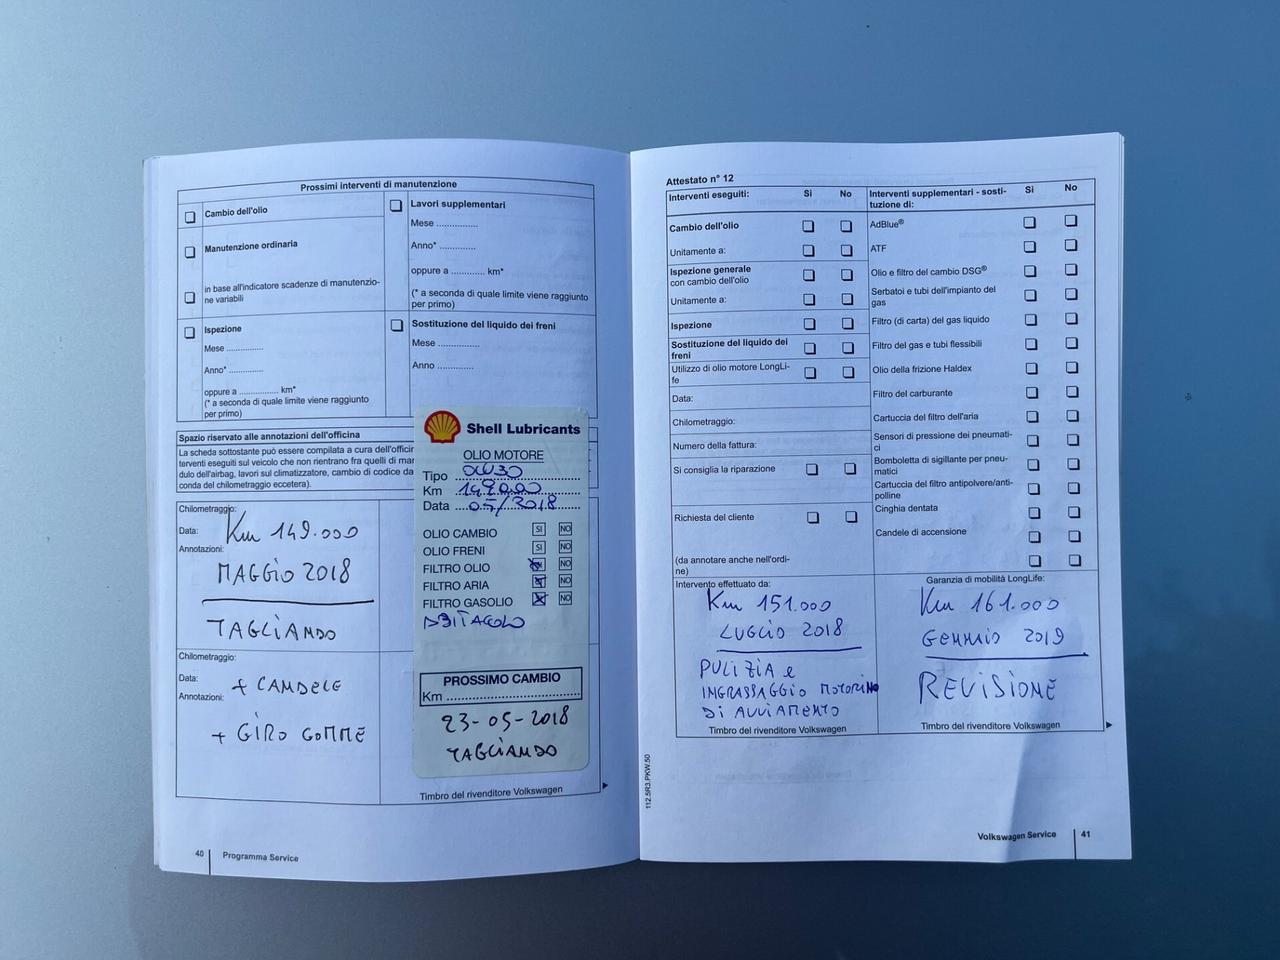 Prossimi interventi di manutenzione
Cambio dell'olio
Manutenzione ordinaria
in base all'indicatore scadenze di manutenzio-
ne variabili
Ispezione
Mese ..............
Anno* ..............
oppure a .............. km*
(* a seconda di quale limite viene raggiunto
per primo)
Lavori supplementari
Mese ..............
Anno* ..............
oppure a ............ km*
(* a seconda di quale limite viene raggiunto
per primo)
Sostituzione del liquido dei freni
Mese ..............
Anno ..............
Spazio riservato alle annotazioni dell'officina
La scheda sottostante può essere compilata a cura dell'officin
terventi eseguiti sul veicolo che non rientrano fra quelli di man
dulo dell'airbag, lavori sul climatizzatore, cambio di codice da
conda del chilometraggio eccetera).
Chilometraggio:
Data:
Annotazioni:
Km 149.000
MAGGIO 2018
TAGLIANDO
Chilometraggio:
Data:
Annotazioni:
+ CANDELE
+ GIRO GOMME
Shell Lubricants
OLIO MOTORE
Tipo
Km 149000
Data 05/2018
OLIO CAMBIO SI NO
OLIO FRENI SI NO
FILTRO OLIO NO
FILTRO ARIA NO
FILTRO GASOLIO NO
PROSSIMO CAMBIO
Km
23-05-2018
TAGLIANDO
Timbro del rivenditore Volkswagen
40 Programma Service
Attestato n° 12
Interventi eseguiti: Si No
Cambio dell'olio
Unitamente a:
Ispezione generale
con cambio dell'olio
Unitamente a:
Ispezione
Sostituzione del liquido dei
freni
Utilizzo di olio motore LongLi-
fe
Data:
Chilometraggio:
Numero della fattura:
Si consiglia la riparazione
Richiesta del cliente
(da annotare anche nell'ordi-
ne)
Interventi supplementari - sosti- Si No
tuzione di:
AdBlue®
ATF
Olio e filtro del cambio DSG®
Serbatoi e tubi dell'impianto del
gas
Filtro (di carta) del gas liquido
Filtro del gas e tubi flessibili
Olio della frizione Haldex
Filtro del carburante
Cartuccia del filtro dell'aria
Sensori di pressione dei pneumati-
ci
Bomboletta di sigillante per pneu-
matici
Cartuccia del filtro antipolvere/anti-
polline
Cinghia dentata
Candele di accensione
Intervento effettuato da:
Km 151.000
LUGLIO 2018
PULIZIA e
INGRASSAGGIO MOTORINO
DI AVVIAMENTO
Timbro del rivenditore Volkswagen
Garanzia di mobilità LongLife:
Km 161.000
GENNAIO 2019
REVISIONE
Timbro del rivenditore Volkswagen
112.5R3.PKW.50
Volkswagen Service 41